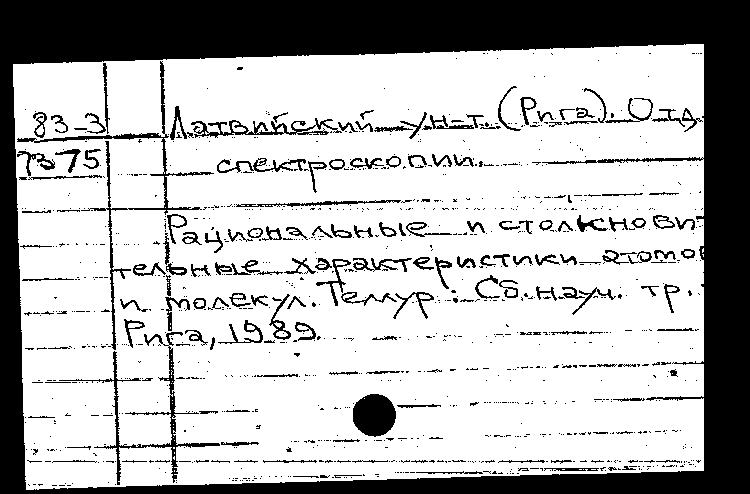 83-3 Латвийский ун-т. (Рига). Отд.
7375 спектроскопии.
Рациональные и столкнови-
тельные характеристики атомов
и молекул. Теллур: Сб. науч. тр. -
Рига, 1989.